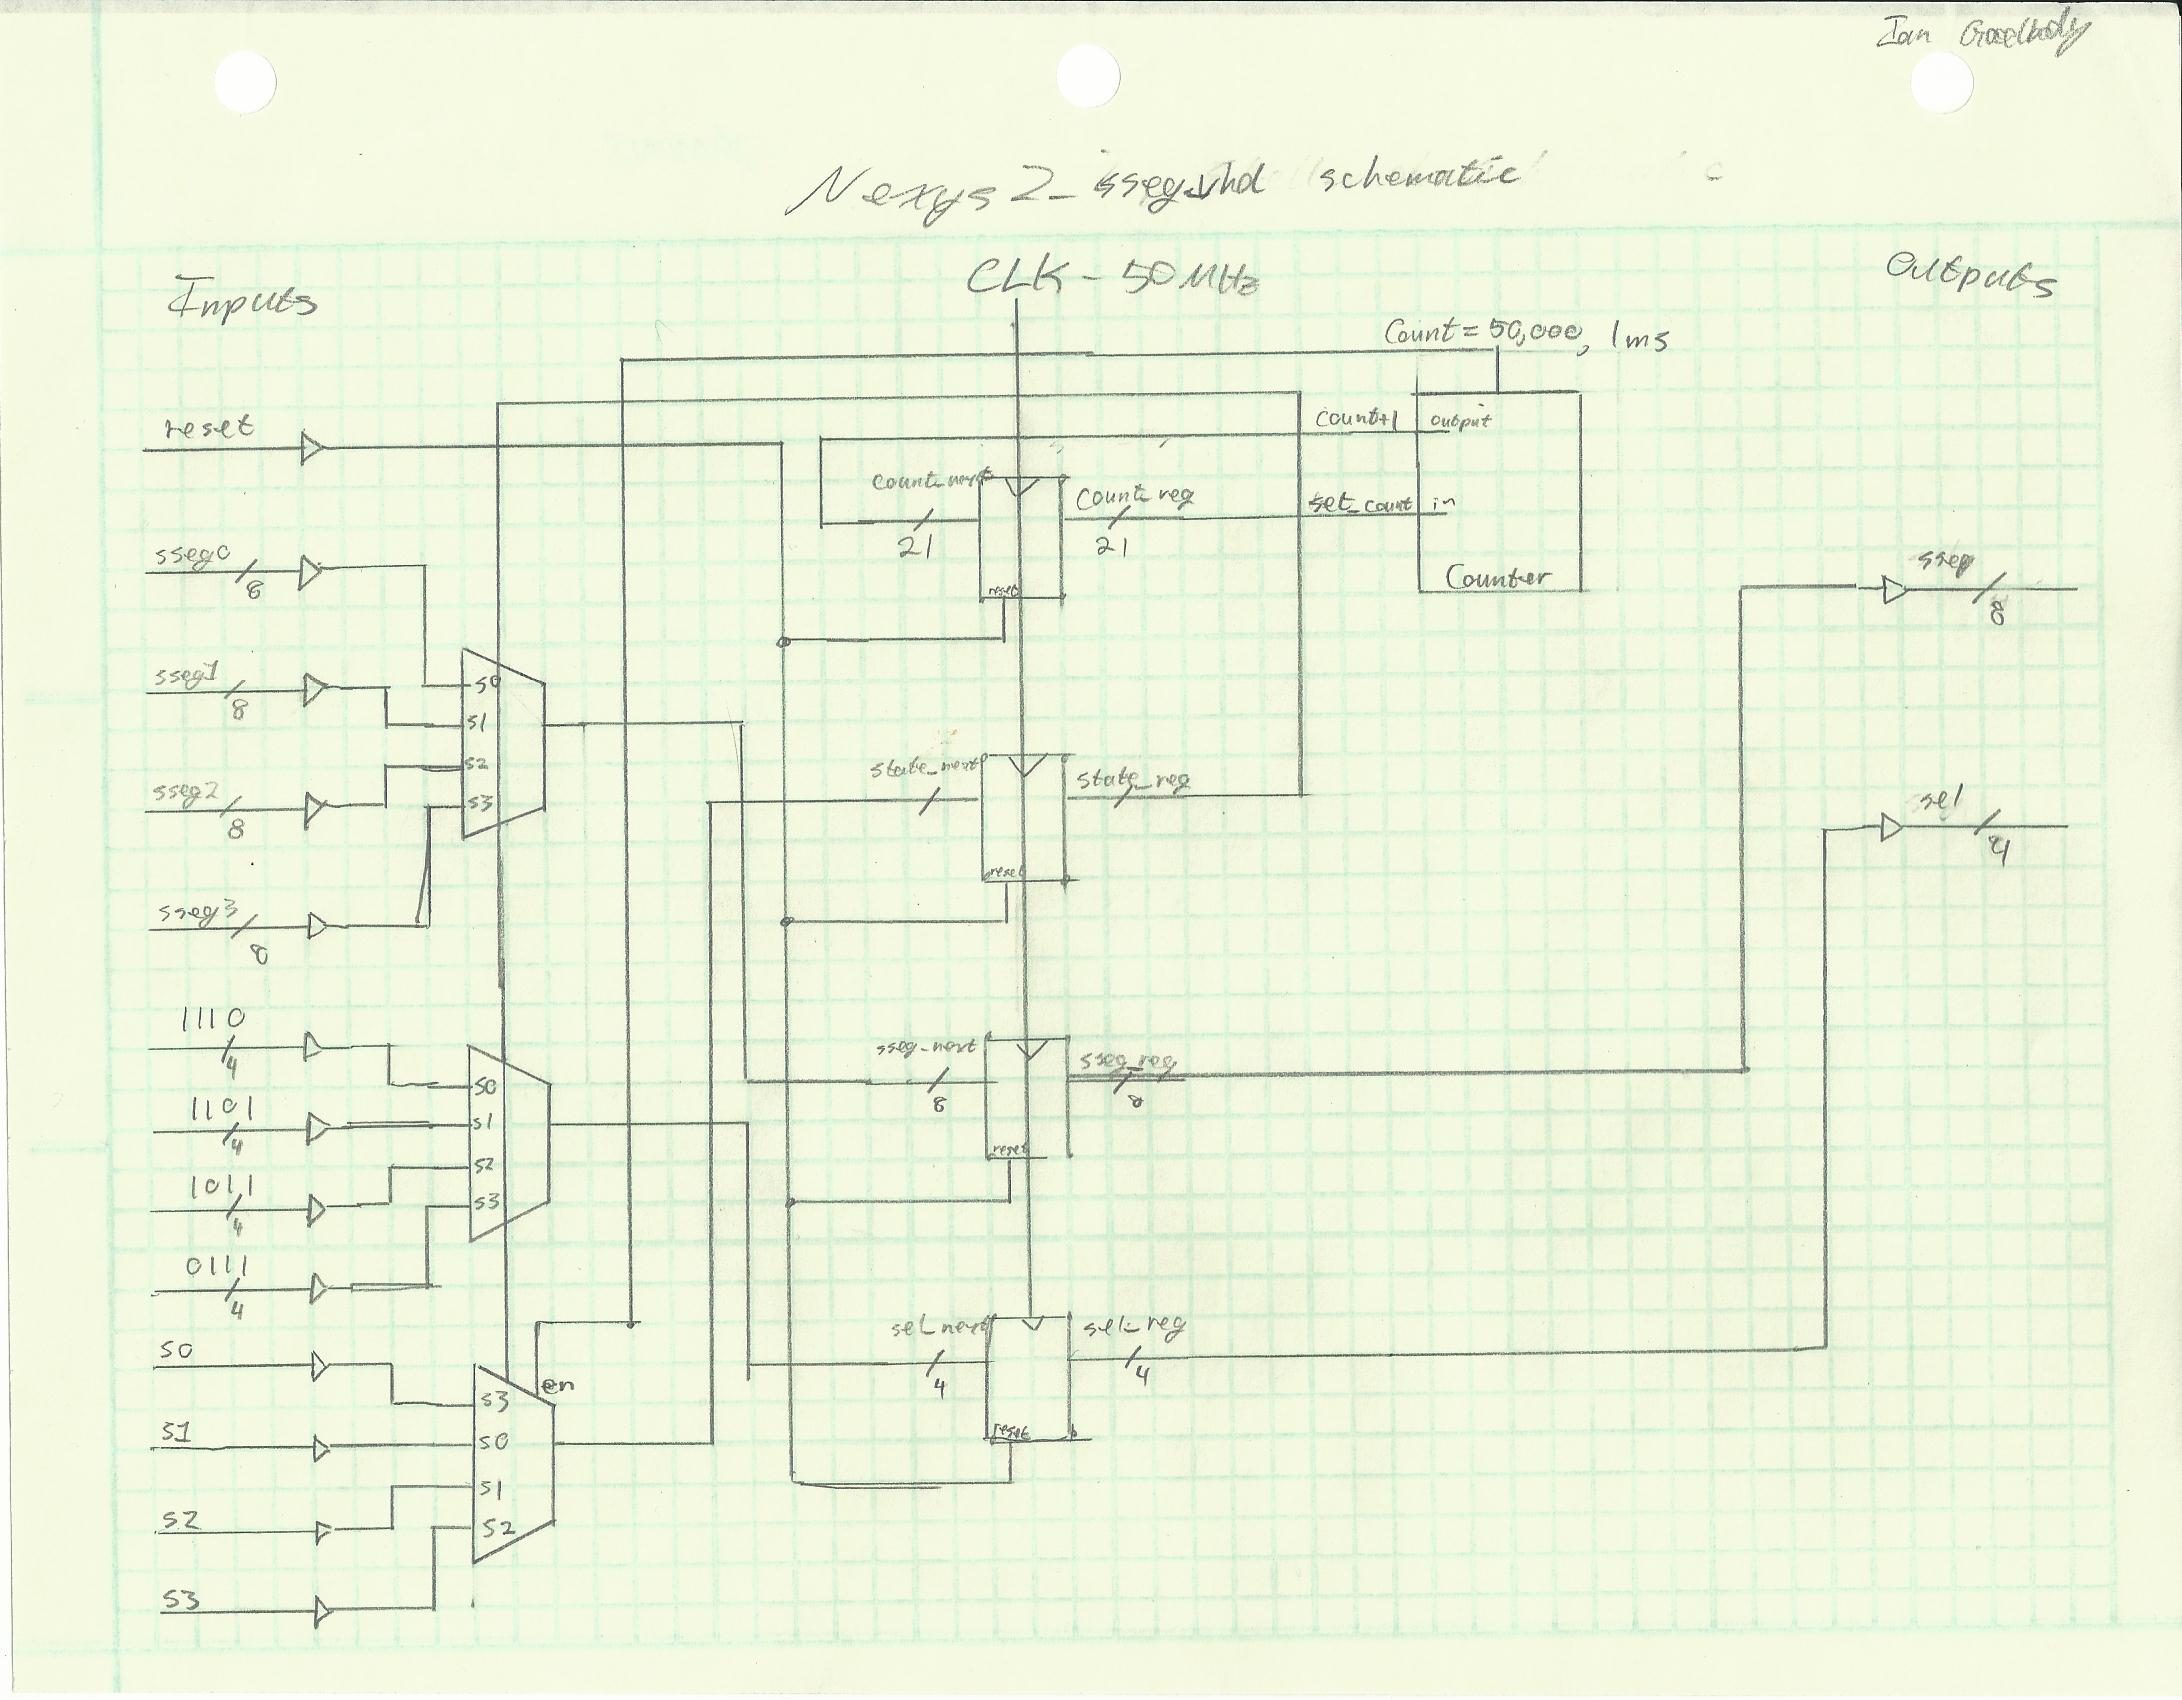 Ian Goodbody
Nexys2_sseg.vhd schematic
Inputs
CLK - 50MHz
Outputs
Count = 50,000, 1ms
reset
count+1
output
count_next
count_reg
set_count
in
21
21
reset
Counter
sseg0
8
sseg
8
sseg1
8
S0
S1
S2
S3
sseg2
8
state_next
state_reg
reset
sel
4
sseg3
8
1110
4
sseg_next
sseg_reg
8
8
reset
S0
S1
S2
S3
1101
4
1011
4
0111
4
sel_next
sel_reg
4
4
reset
S0
en
S3
S0
S1
S2
S1
S2
S3